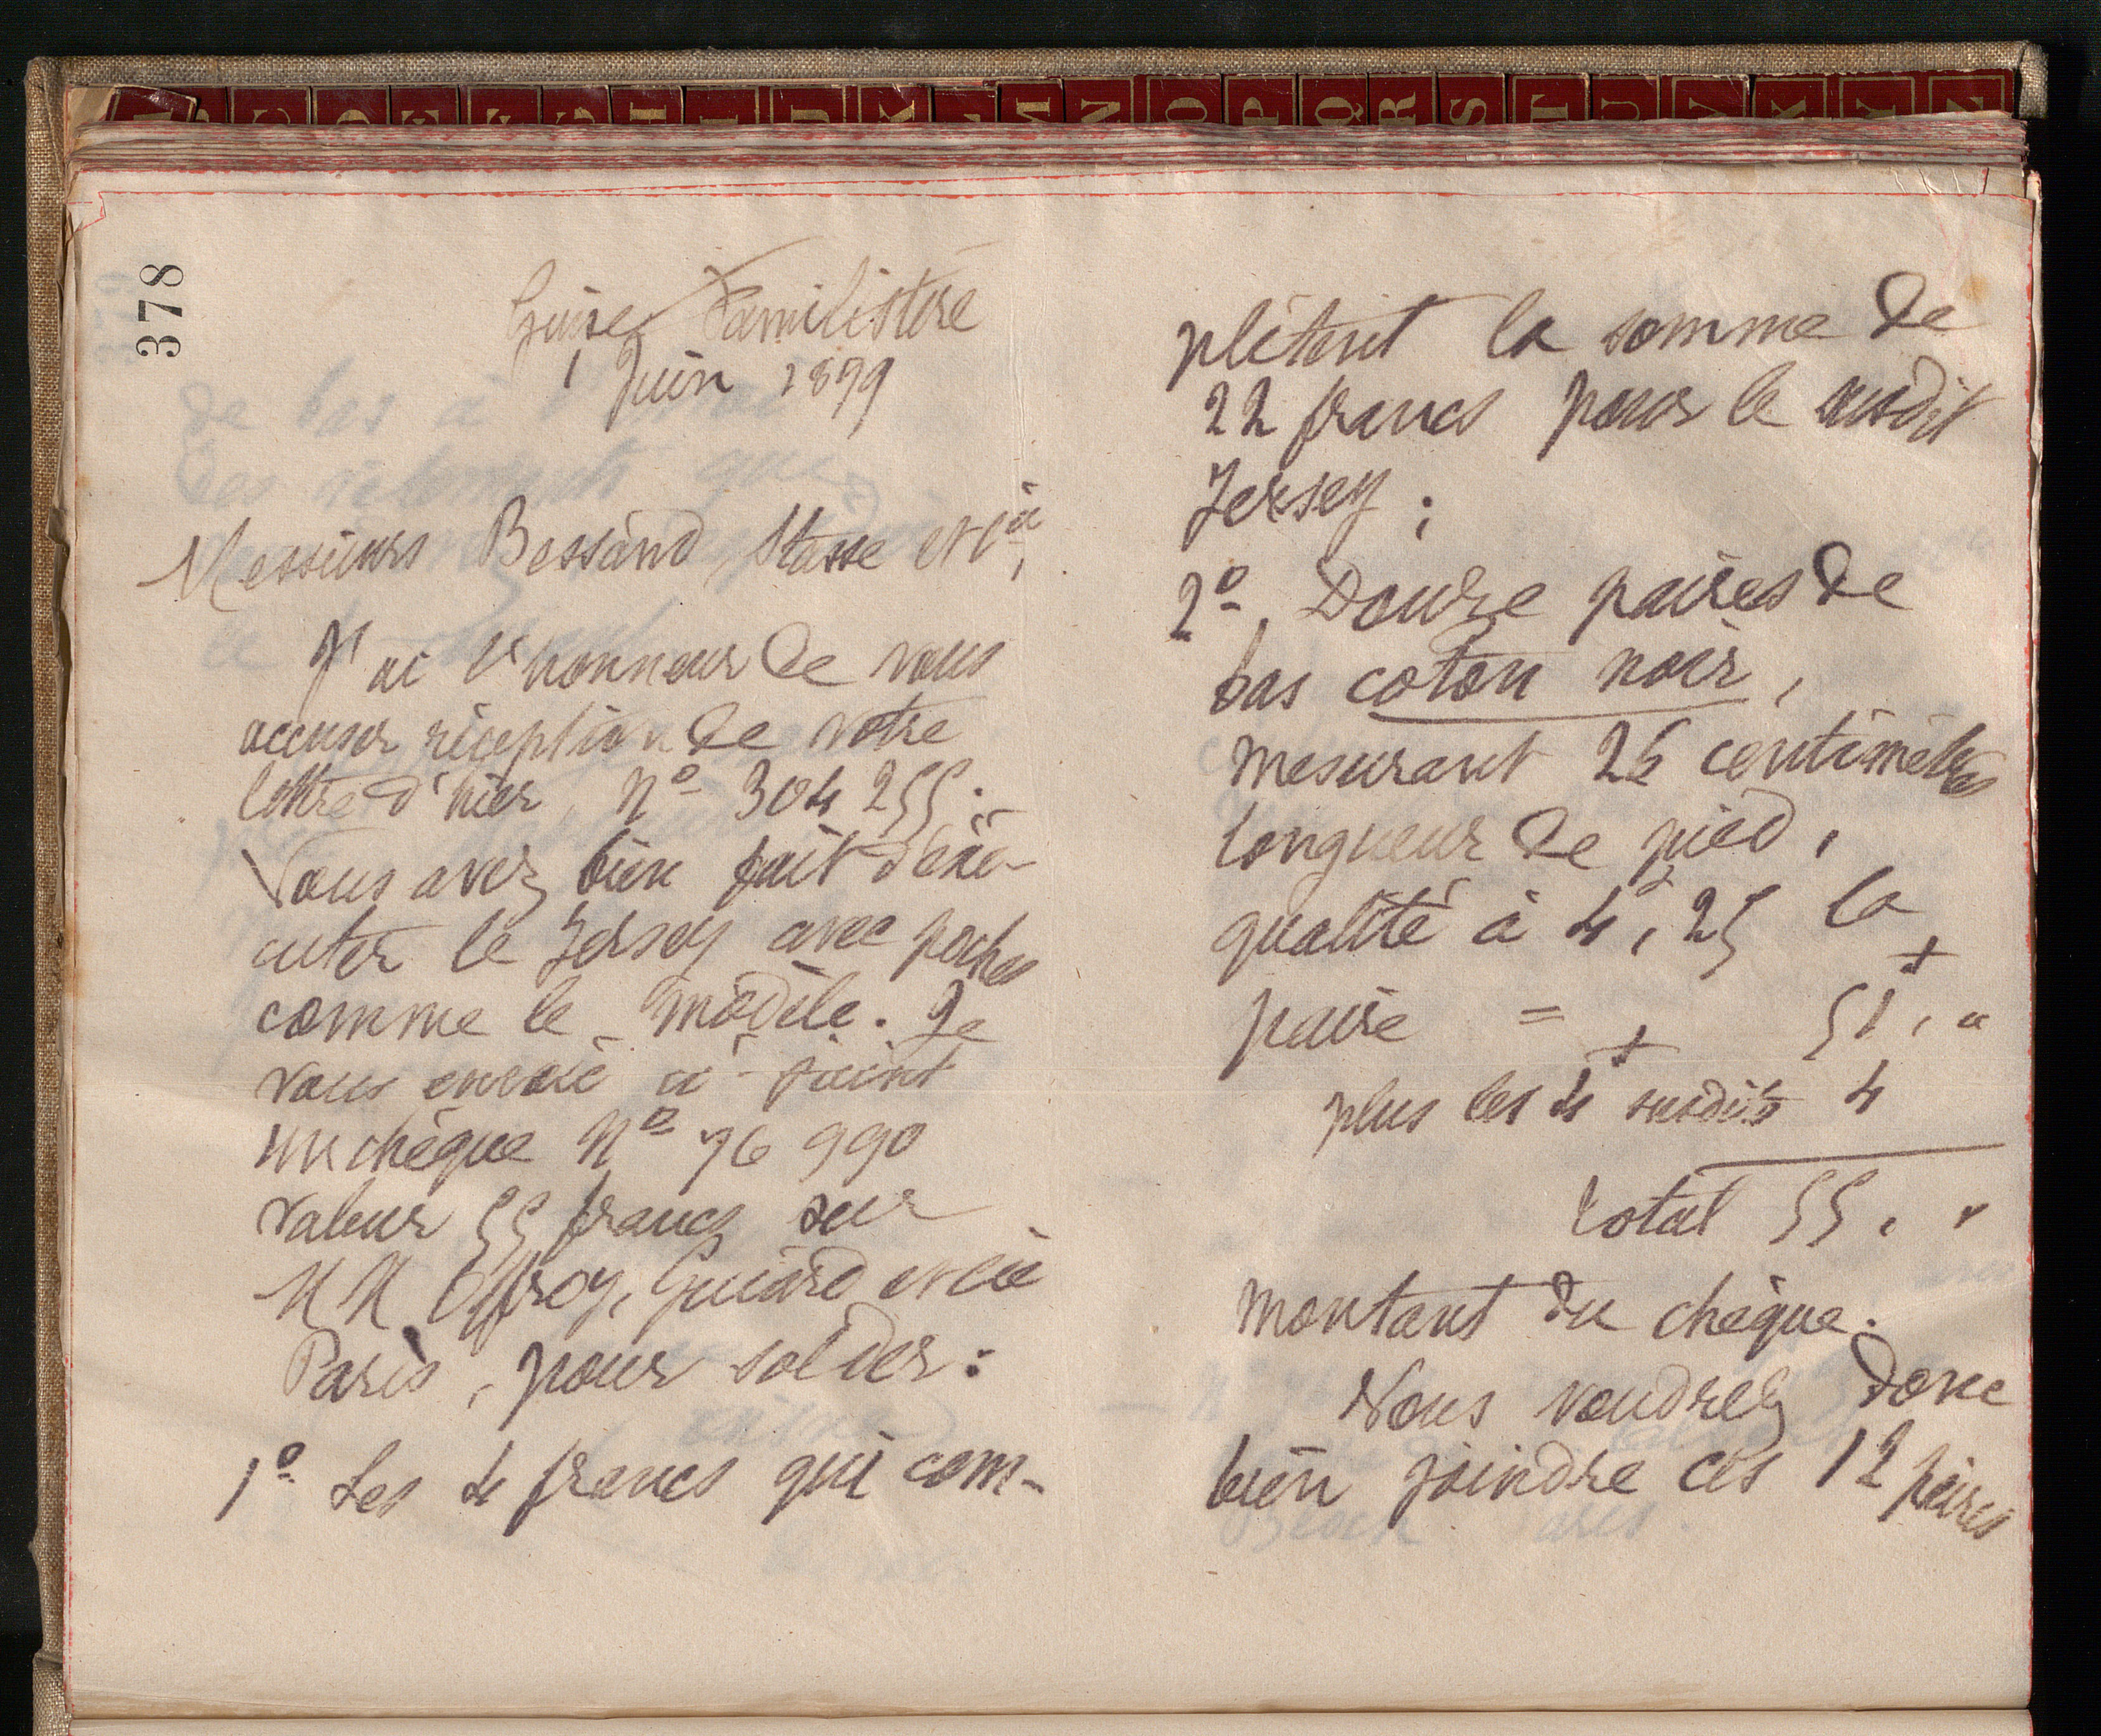 378
Guise Familistère
1 Juin 1899
Messieurs Bessand, Stasse et Cie,
J'ai l'honneur de vous
accuser réception de votre
lettre d'hier, No 304 255.
Vous avez bien fait d'exé-
cuter le Jersey avec poches
comme le modèle. Je
vous envoie ci-joint
un chèque No 76 990
valeur 55 francs sur
MM Offroy, Guiard et Cie
Paris, pour solder :
1o Les 4 francs qui com-
plètent la somme de
22 francs pour le susdit
Jersey ;
2o Douze paires de
bas coton noir,
mesurant 26 centimètres
longueur de pied,
qualité à 4f, 25 la
paire = 51, "
plus les 4f susdits 4
total 55, "
montant du chèque.
Vous voudrez donc
bien joindre ces 12 paires